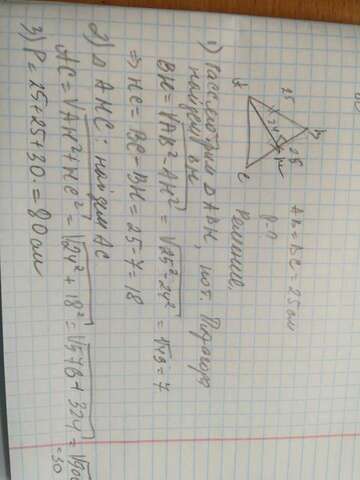 AB=BC=25см
P-?
Решение.
A
25
B
24
25
H
C
1) Рассмотрим ΔABH, по т. Пифагора
найдём BH.
BH=√AB²-AH² = √25²-24² = √49 = 7
⇒ HC = BC-BH = 25-7=18
2) Δ AHC: найдём AC
AC=√AH²+HC² = √24²+18² = √576+324 = √900
=30
3) P=25+25+30=80см